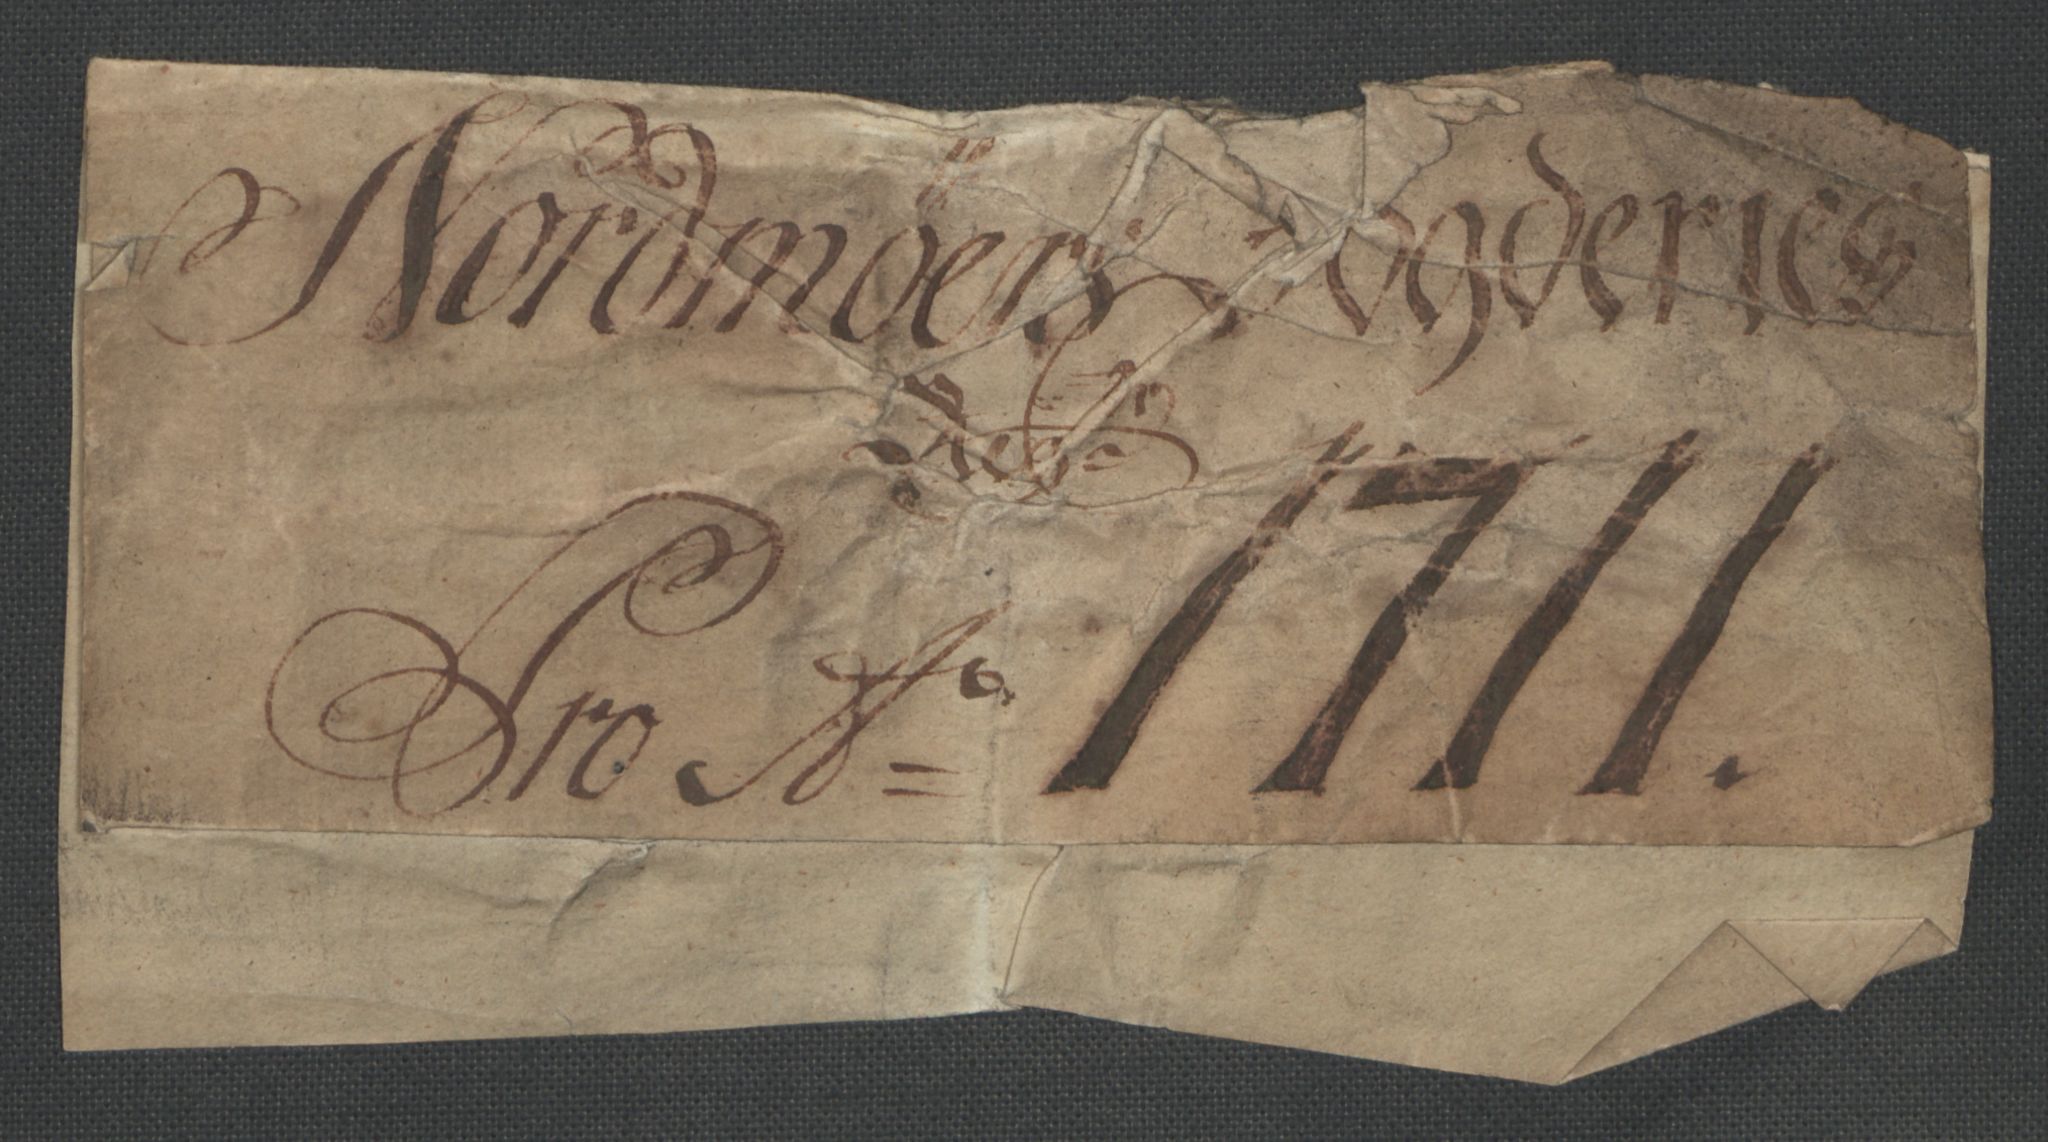 Nordmöers Fogderies
Pro Ao 1711.